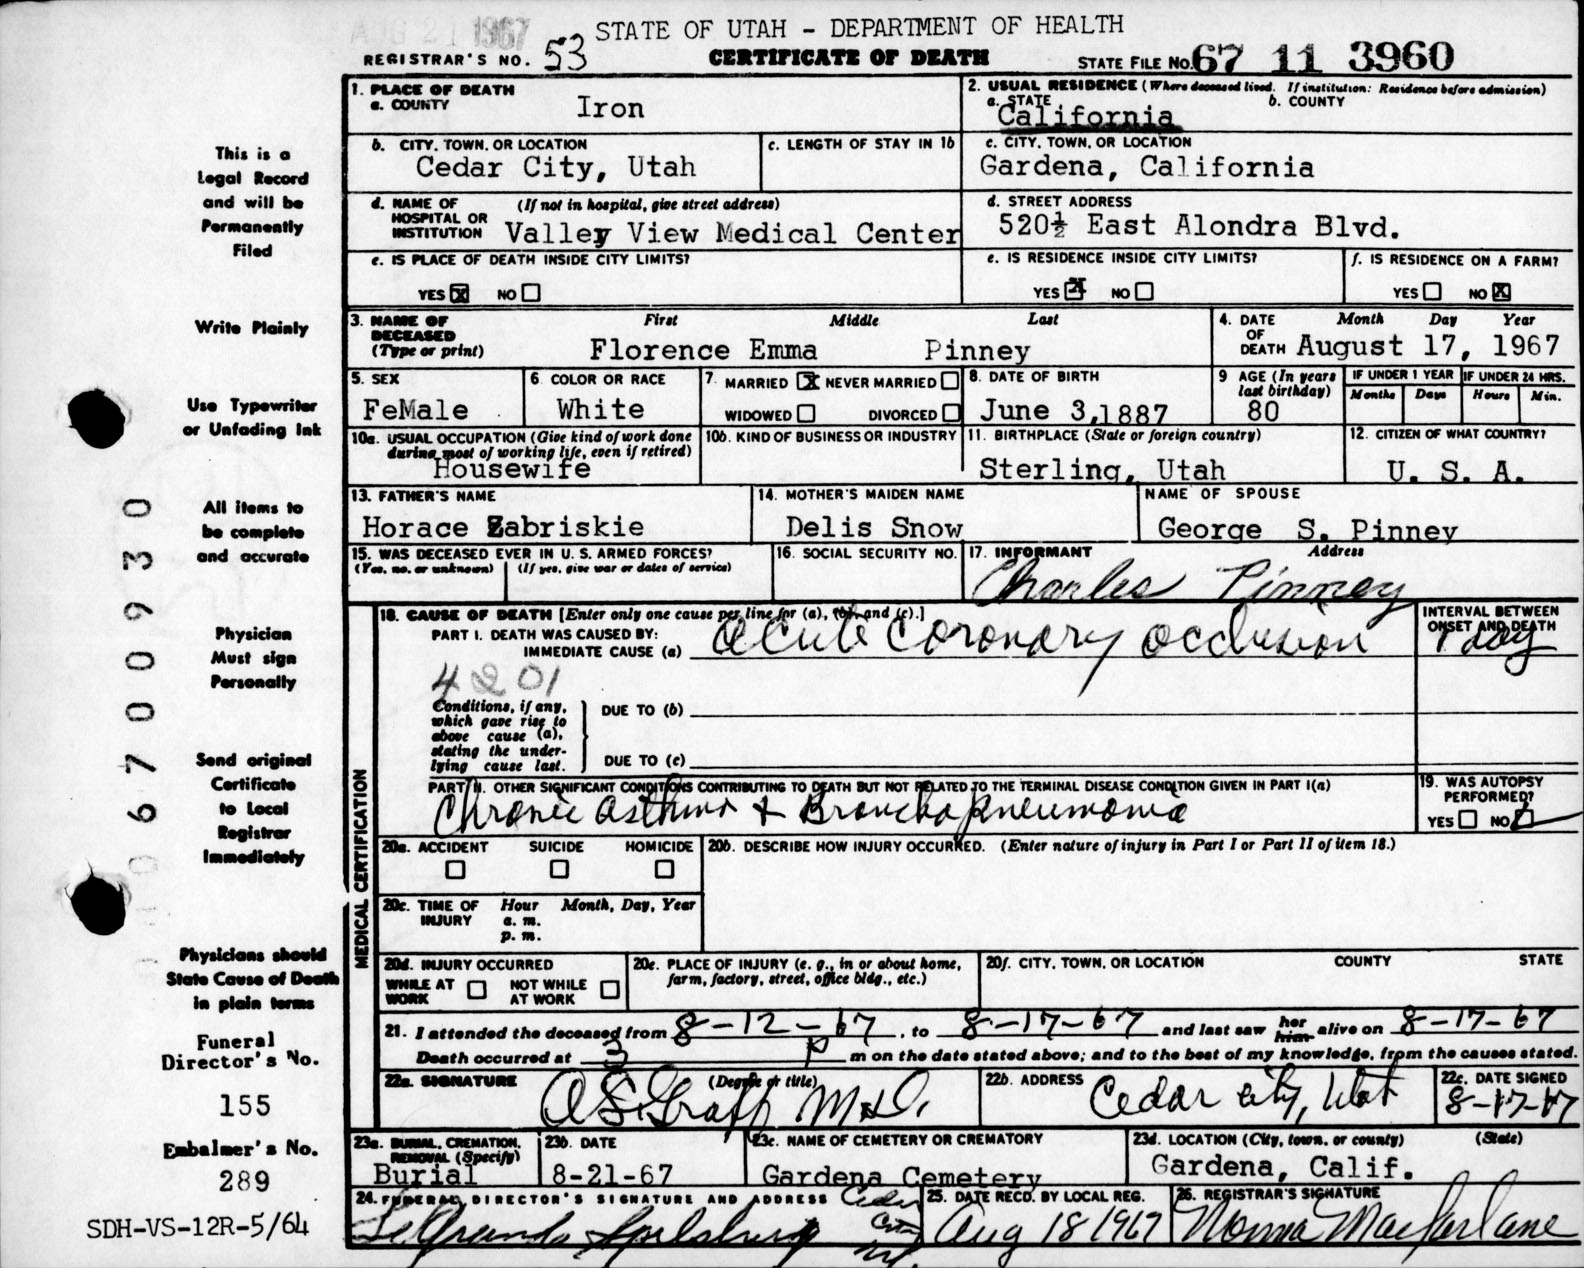 AUG 21 1967
STATE OF UTAH - DEPARTMENT OF HEALTH
REGISTRAR'S NO. 53 CERTIFICATE OF DEATH STATE FILE NO. 67 11 3960
1. PLACE OF DEATH
a. COUNTY Iron
2. USUAL RESIDENCE (Where deceased lived. If institution: Residence before admission)
a. STATE California b. COUNTY
b. CITY, TOWN, OR LOCATION Cedar City, Utah
c. LENGTH OF STAY IN 1b
c. CITY, TOWN, OR LOCATION Gardena, California
d. NAME OF HOSPITAL OR INSTITUTION (If not in hospital, give street address) Valley View Medical Center
d. STREET ADDRESS 520½ East Alondra Blvd.
e. IS PLACE OF DEATH INSIDE CITY LIMITS?
YES X NO
e. IS RESIDENCE INSIDE CITY LIMITS?
YES X NO
f. IS RESIDENCE ON A FARM?
YES NO X
3. NAME OF DECEASED (Type or print) First Middle Last
Florence Emma Pinney
4. DATE OF DEATH Month Day Year
August 17, 1967
5. SEX FeMale
6. COLOR OR RACE White
7. MARRIED X NEVER MARRIED
WIDOWED DIVORCED
8. DATE OF BIRTH June 3, 1887
9 AGE (In years last birthday) 80
IF UNDER 1 YEAR Months Days
IF UNDER 24 HRS. Hours Min.
10a. USUAL OCCUPATION (Give kind of work done during most of working life, even if retired)
Housewife
10b. KIND OF BUSINESS OR INDUSTRY
11. BIRTHPLACE (State or foreign country)
Sterling, Utah
12. CITIZEN OF WHAT COUNTRY?
U. S. A.
13. FATHER'S NAME
Horace Zabriskie
14. MOTHER'S MAIDEN NAME
Delis Snow
NAME OF SPOUSE
George S. Pinney
15. WAS DECEASED EVER IN U. S. ARMED FORCES?
(Yes, no, or unknown) (If yes, give war or dates of service)
16. SOCIAL SECURITY NO.
17. INFORMANT Address
Charles Pinney
18. CAUSE OF DEATH [Enter only one cause per line for (a), (b), and (c).]
PART I. DEATH WAS CAUSED BY:
IMMEDIATE CAUSE (a) Acute Coronary Occlusion
INTERVAL BETWEEN ONSET AND DEATH
1 day
4201
Conditions, if any, which gave rise to above cause (a), stating the underlying cause last.
DUE TO (b)
DUE TO (c)
PART II. OTHER SIGNIFICANT CONDITIONS CONTRIBUTING TO DEATH BUT NOT RELATED TO THE TERMINAL DISEASE CONDITION GIVEN IN PART I(a)
Chronic asthma + Bronchopneumonia
19. WAS AUTOPSY PERFORMED?
YES NO
MEDICAL CERTIFICATION
20a. ACCIDENT SUICIDE HOMICIDE
20b. DESCRIBE HOW INJURY OCCURRED. (Enter nature of injury in Part I or Part II of item 18.)
20c. TIME OF INJURY Hour Month, Day, Year
a. m.
p. m.
20d. INJURY OCCURRED
WHILE AT WORK NOT WHILE AT WORK
20e. PLACE OF INJURY (e. g., in or about home, farm, factory, street, office bldg., etc.)
20f. CITY, TOWN, OR LOCATION COUNTY STATE
21. I attended the deceased from 8-12-67, to 8-17-67 and last saw her him alive on 8-17-67
Death occurred at 3 P m on the date stated above; and to the best of my knowledge, from the causes stated.
22a. SIGNATURE (Degree or title)
Graff M.D.
22b. ADDRESS Cedar City, Utah
22c. DATE SIGNED
8-17-67
23a. BURIAL, CREMATION, REMOVAL (Specify)
Burial
23b. DATE
8-21-67
23c. NAME OF CEMETERY OR CREMATORY
Gardena Cemetery
23d. LOCATION (City, town, or county) (State)
Gardena, Calif.
24. FUNERAL DIRECTOR'S SIGNATURE AND ADDRESS
Cedar City
25. DATE RECD. BY LOCAL REG.
Aug 18 1967
26. REGISTRAR'S SIGNATURE
Norma Macfarlane
This is a
Legal Record
and will be
Permanently
Filed
Write Plainly
Use Typewriter
or Unfading Ink
All items to
be complete
and accurate
Physician
Must sign
Personally
Send original
Certificate
to Local
Registrar
Immediately
Physicians should
State Cause of Death
in plain terms
Funeral
Director's No.
155
Embalmer's No.
289
SDH-VS-12R-5/64